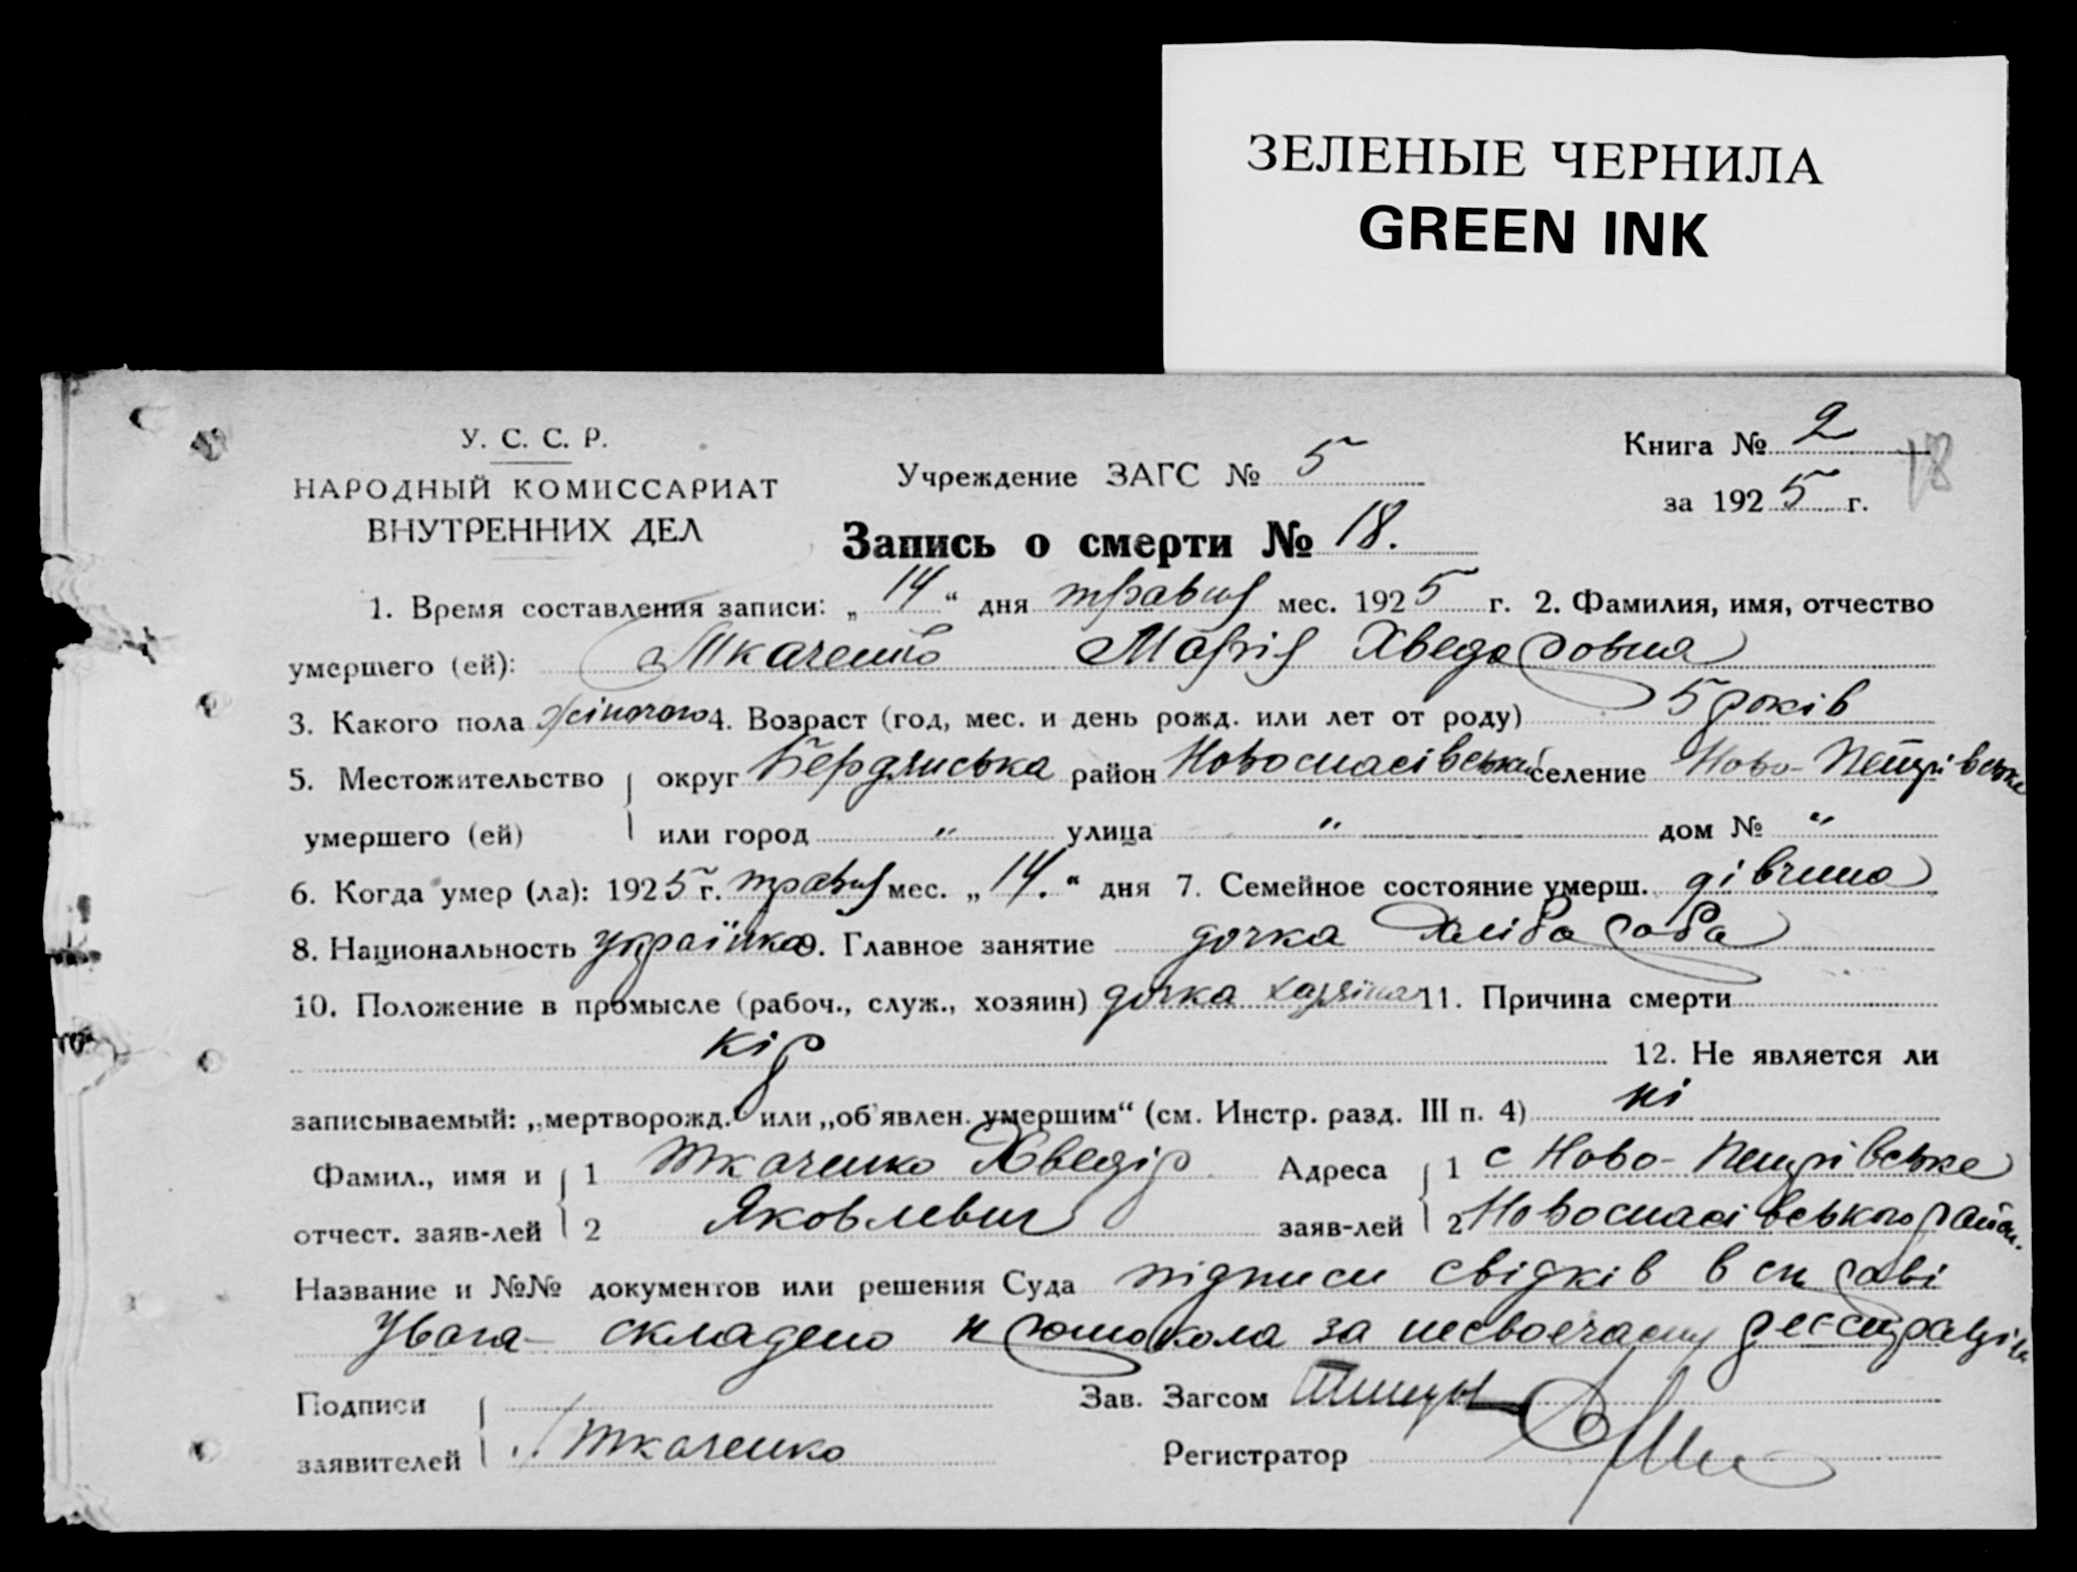 ЗЕЛЕНЫЕ ЧЕРНИЛА
GREEN INK
У. С. С. Р.
НАРОДНЫЙ КОМИССАРИАТ
ВНУТРЕННИХ ДЕЛ
Учреждение ЗАГС № 5
Книга № 2
за 1925 г.
18
Запись о смерти № 18.
1. Время составления записи: „14“ дня травня мес. 1925 г. 2. Фамилия, имя, отчество
умершего (ей): Ткаченко Марія Хведоровна
3. Какого пола жіночого 4. Возраст (год, мес. и день рожд. или лет от роду) 5 років
5. Местожительство округ Бердянська район Новоспасівський селение Ново-Петрівське
умершего (ей) или город " улица " дом № "
6. Когда умер (ла): 1925 г. травня мес. „14.“ дня 7. Семейное состояние умерш. дівчина
8. Национальность українка 9. Главное занятие дочка хлібороба
10. Положение в промысле (рабоч., служ., хозяин) дочка хазяїна 11. Причина смерти
кір 12. Не является ли
записываемый: „мертворожд.“ или „об'явлен. умершим“ (см. Инстр. разд. III п. 4) ні
Фамил., имя и 1 Ткаченко Хведір Адреса 1 с Ново-Петрівське
отчест. заяв-лей 2 Яковлевич заяв-лей 2 Новоспасівського район.
Название и №№ документов или решения Суда підписи свідків в справі
Увага - складено протокола за несвоечасну
Подписи Зав. Загсом
заявителей Ткаченко Регистратор